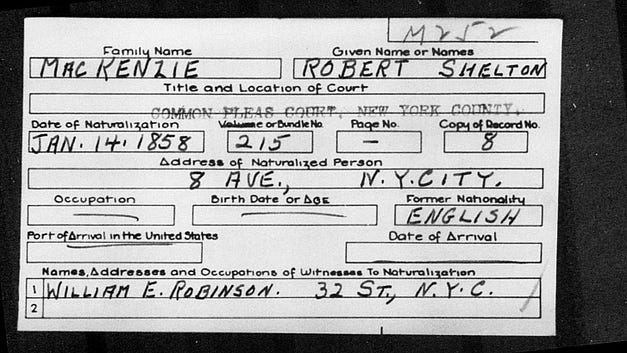 M252
Family Name Given Name or Names
MACKENZIE ROBERT SHELTON
Title and Location of Court
COMMON PLEAS COURT, NEW YORK COUNTY.
Date of Naturalization Volume or Bundle No. Page No. Copy of Record No.
JAN. 14. 1858 215 — 8
Address of Naturalized Person
8 AVE., N.Y.CITY.
Occupation Birth Date or AGE Former Nationality
ENGLISH
Port of Arrival in the United States Date of Arrival
Names, Addresses and Occupations of Witnesses To Naturalization
1 WILLIAM E. ROBINSON. 32 ST., N.Y.C.
2